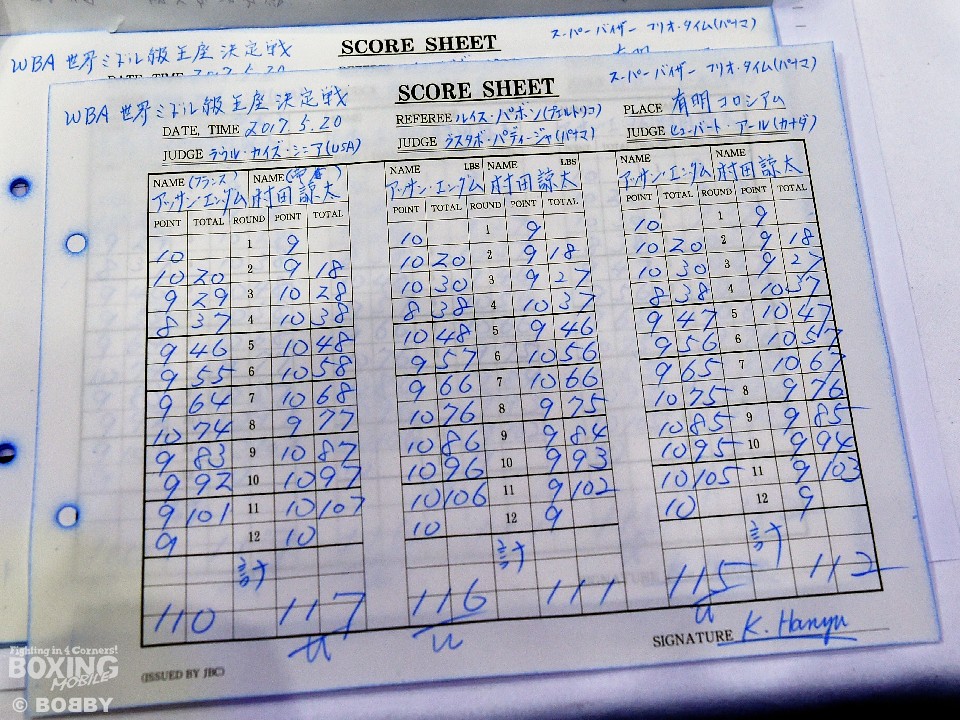 WBA 世界ミドル級王座決定戦
SCORE SHEET
スーパーバイザー フリオ・タイム(パナマ)
DATE, TIME 2017.5.20
WBA 世界ミドル級王座決定戦
SCORE SHEET
スーパーバイザー フリオ・タイム(パナマ)
DATE, TIME 2017.5.20
REFEREE ルイス・パボン(プエルトリコ)
PLACE 有明コロシアム
JUDGE ラウル・カイズ・シニア(USA)
JUDGE グスタボ・パディージャ(パナマ)
JUDGE ヒューバート・アール(カナダ)
NAME (フランス) NAME LBS NAME LBS NAME NAME NAME
アッサン・エンダム 村田諒太 アッサン・エンダム 村田諒太 アッサン・エンダム 村田諒太
POINT TOTAL ROUND POINT TOTAL POINT TOTAL ROUND POINT TOTAL POINT TOTAL ROUND POINT TOTAL
10 1 9 10 1 9 10 1 9
10 20 2 9 18 10 20 2 9 18 10 20 2 9 18
9 29 3 10 28 10 30 3 9 27 10 30 3 9 27
8 37 4 10 38 8 38 4 10 37 8 38 4 10 37
9 46 5 10 48 10 48 5 9 46 9 47 5 10 47
9 55 6 10 58 9 57 6 10 56 9 56 6 10 57
9 64 7 10 68 9 66 7 10 66 9 65 7 10 67
10 74 8 9 77 10 76 8 9 75 10 75 8 9 76
9 83 9 10 87 10 86 9 9 84 10 85 9 9 85
9 92 10 10 97 10 96 10 9 93 10 95 10 9 94
9 101 11 10 107 10 106 11 9 102 10 105 11 9 103
9 12 10 10 12 9 10 12 9
計 計 計
110 117 116 111 115 112
SIGNATURE K. Hanyu
(ISSUED BY JBC)
Fighting in 4 Corners!
BOXING
MOBILE
© BOBBY